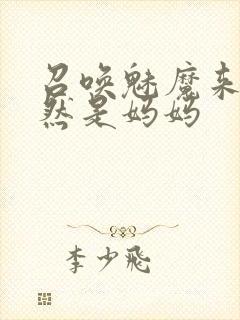 召唤魅魔来
然是妈妈
李少飛